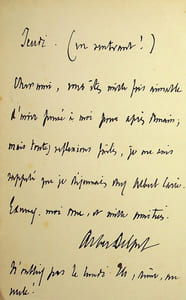 Jeudi. (en rentrant!)
Cher ami, vous êtes mille fois aimable
d'avoir pensé à moi pour après demain;
mais toutes réflexions faites, je me suis
rappelé que je déjeunais chez Albert
moi donc, et mille amitiés.
Albert Delpit
N'oubliez pas le lundi